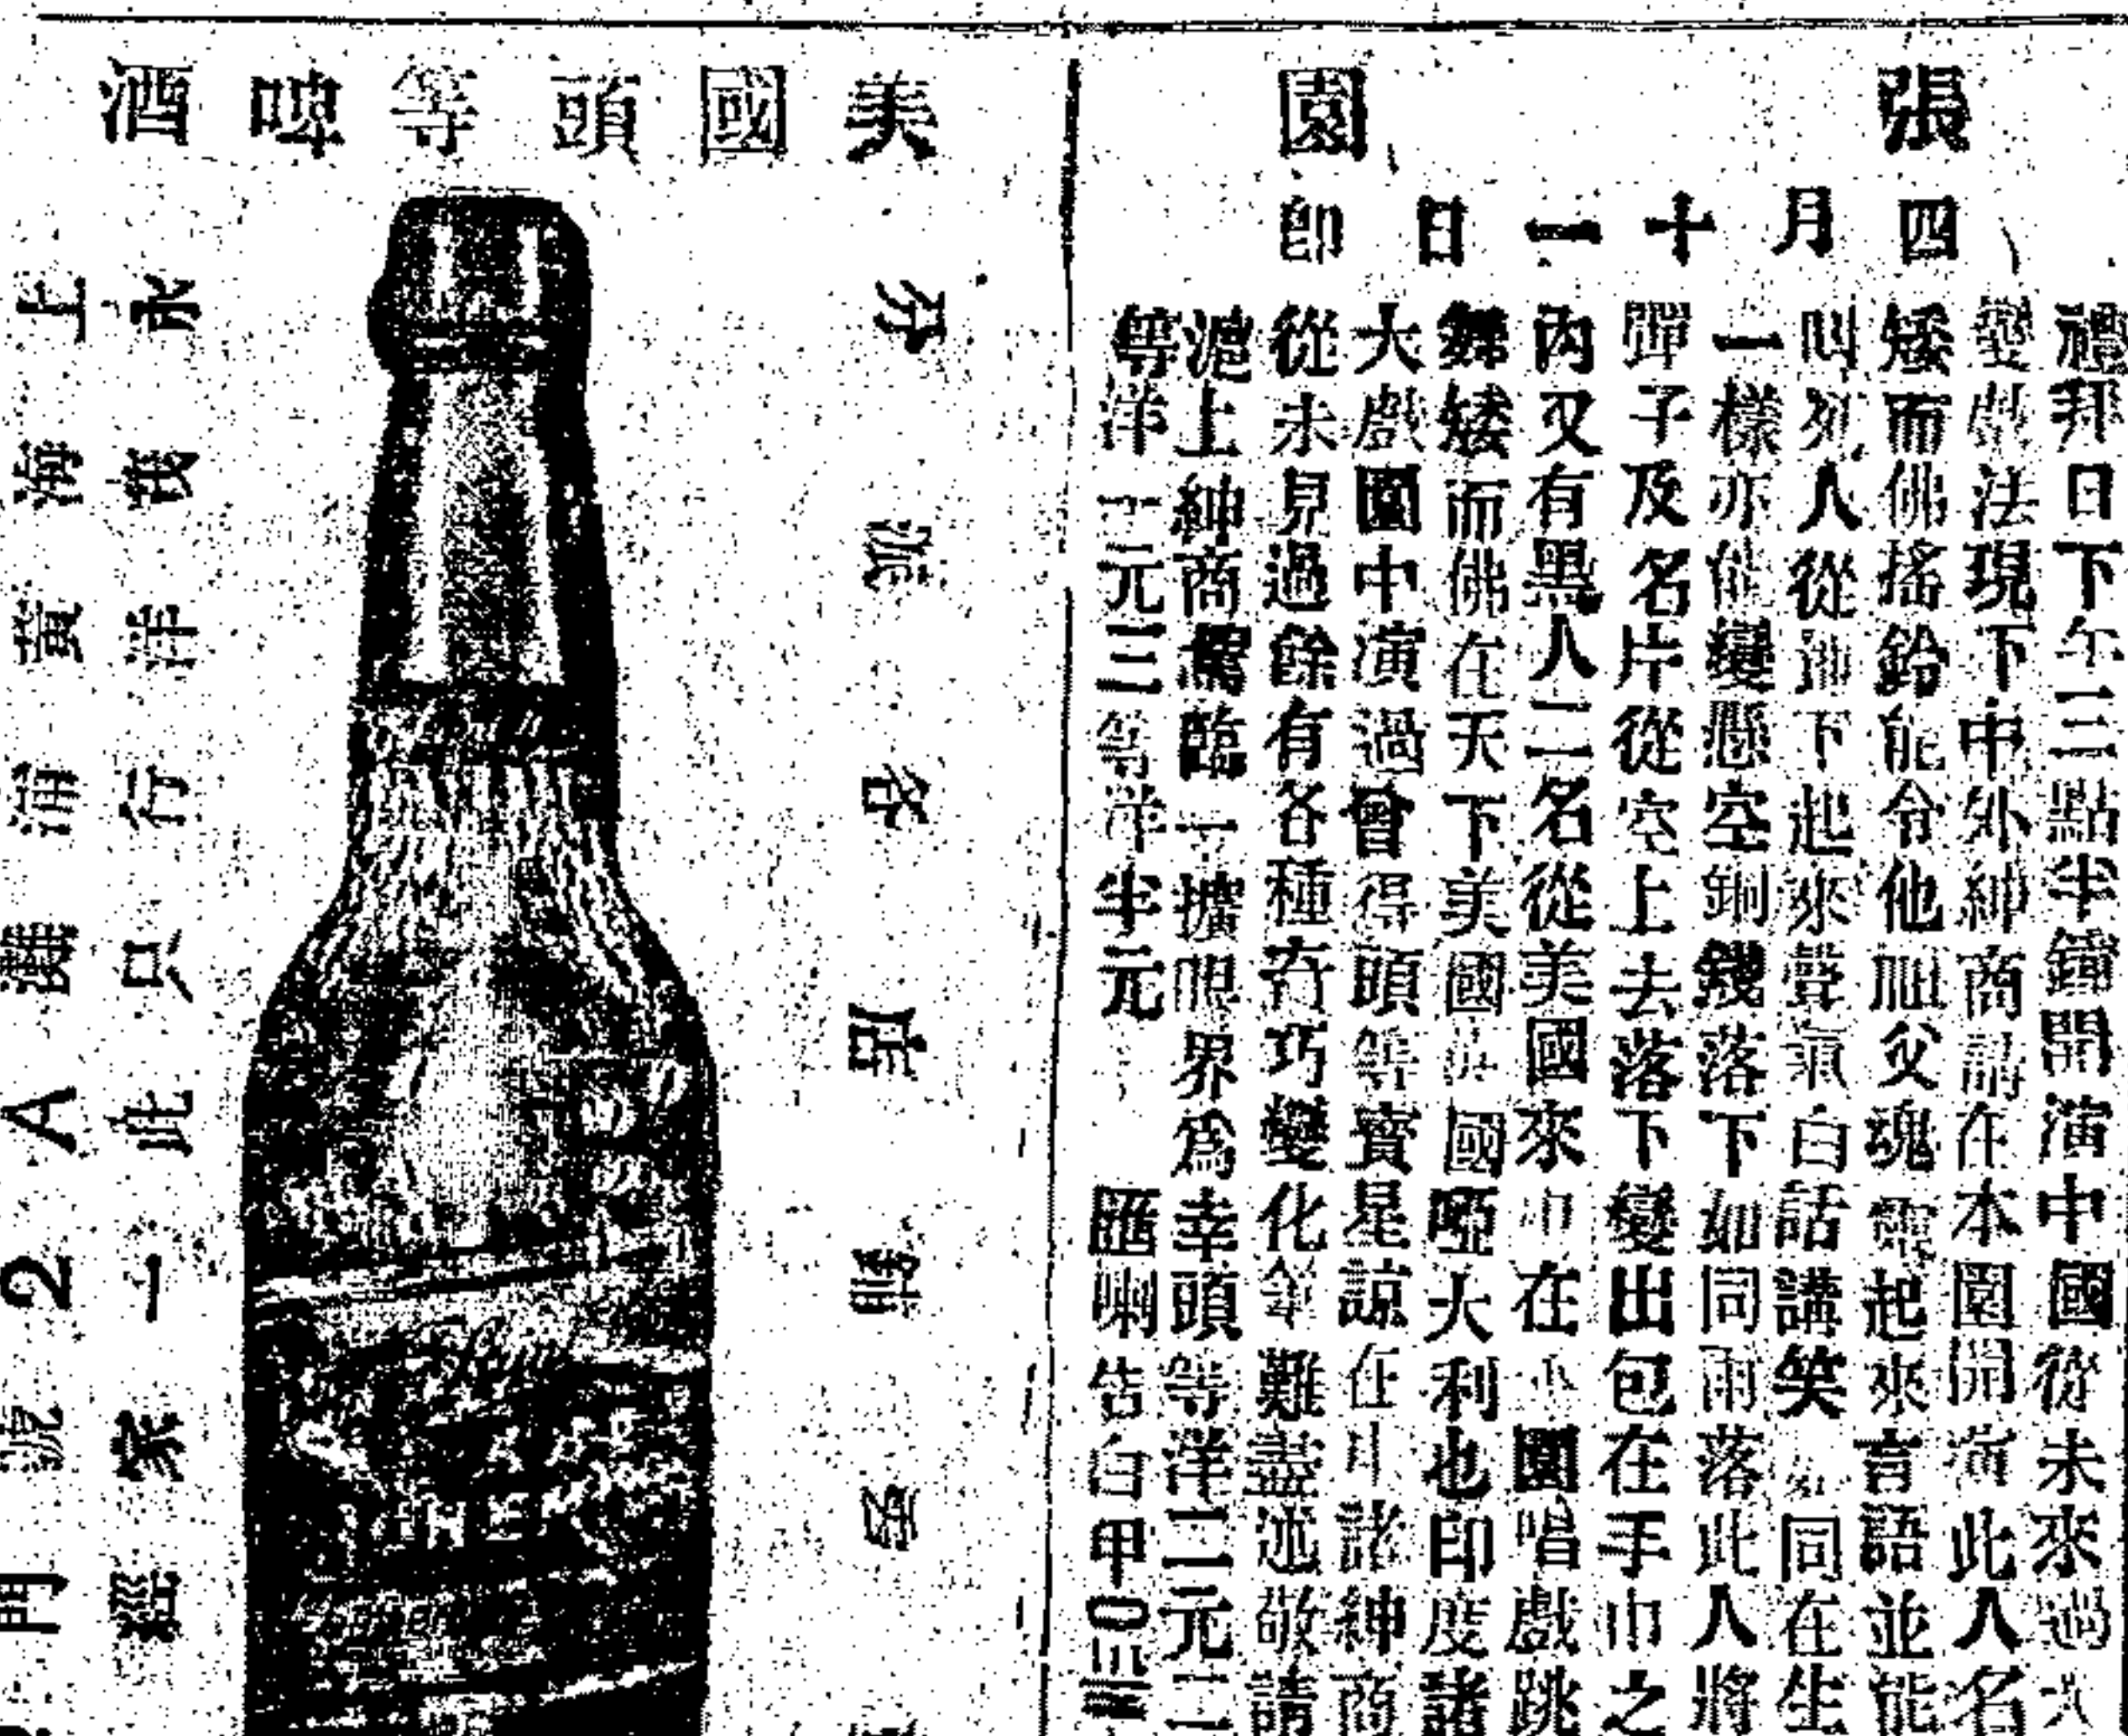 張園
四月十一日即
禮拜日下午三點半鐘開演中國從未來過
變戲法現下中外紳商請在本園開演此人名
矮而佛搖鈴能令他祖父魂靈起來言語並能
叫死人從地下起來聲氣白話講笑如同在生
一樣亦能變懸空銅錢落下如同雨落此人將
彈子及名片從空上去落下變出包在手巾之
內又有黑人二名從美國來申在本園唱戲跳
舞矮而佛在天下美國英國啞大利也印度諸
大戲園中演過曾得頭等寶星諒在申諸紳商
從未見過餘有各種奇巧變化筆難盡述敬請
滬上紳商駕臨一擴眼界為幸頭等洋二元二
等洋一元三等洋半元 匯喇告白甲〇三三
美國頭等啤酒
分派各店購要
永我洋行只此一家經
上海黃浦灘A2號門